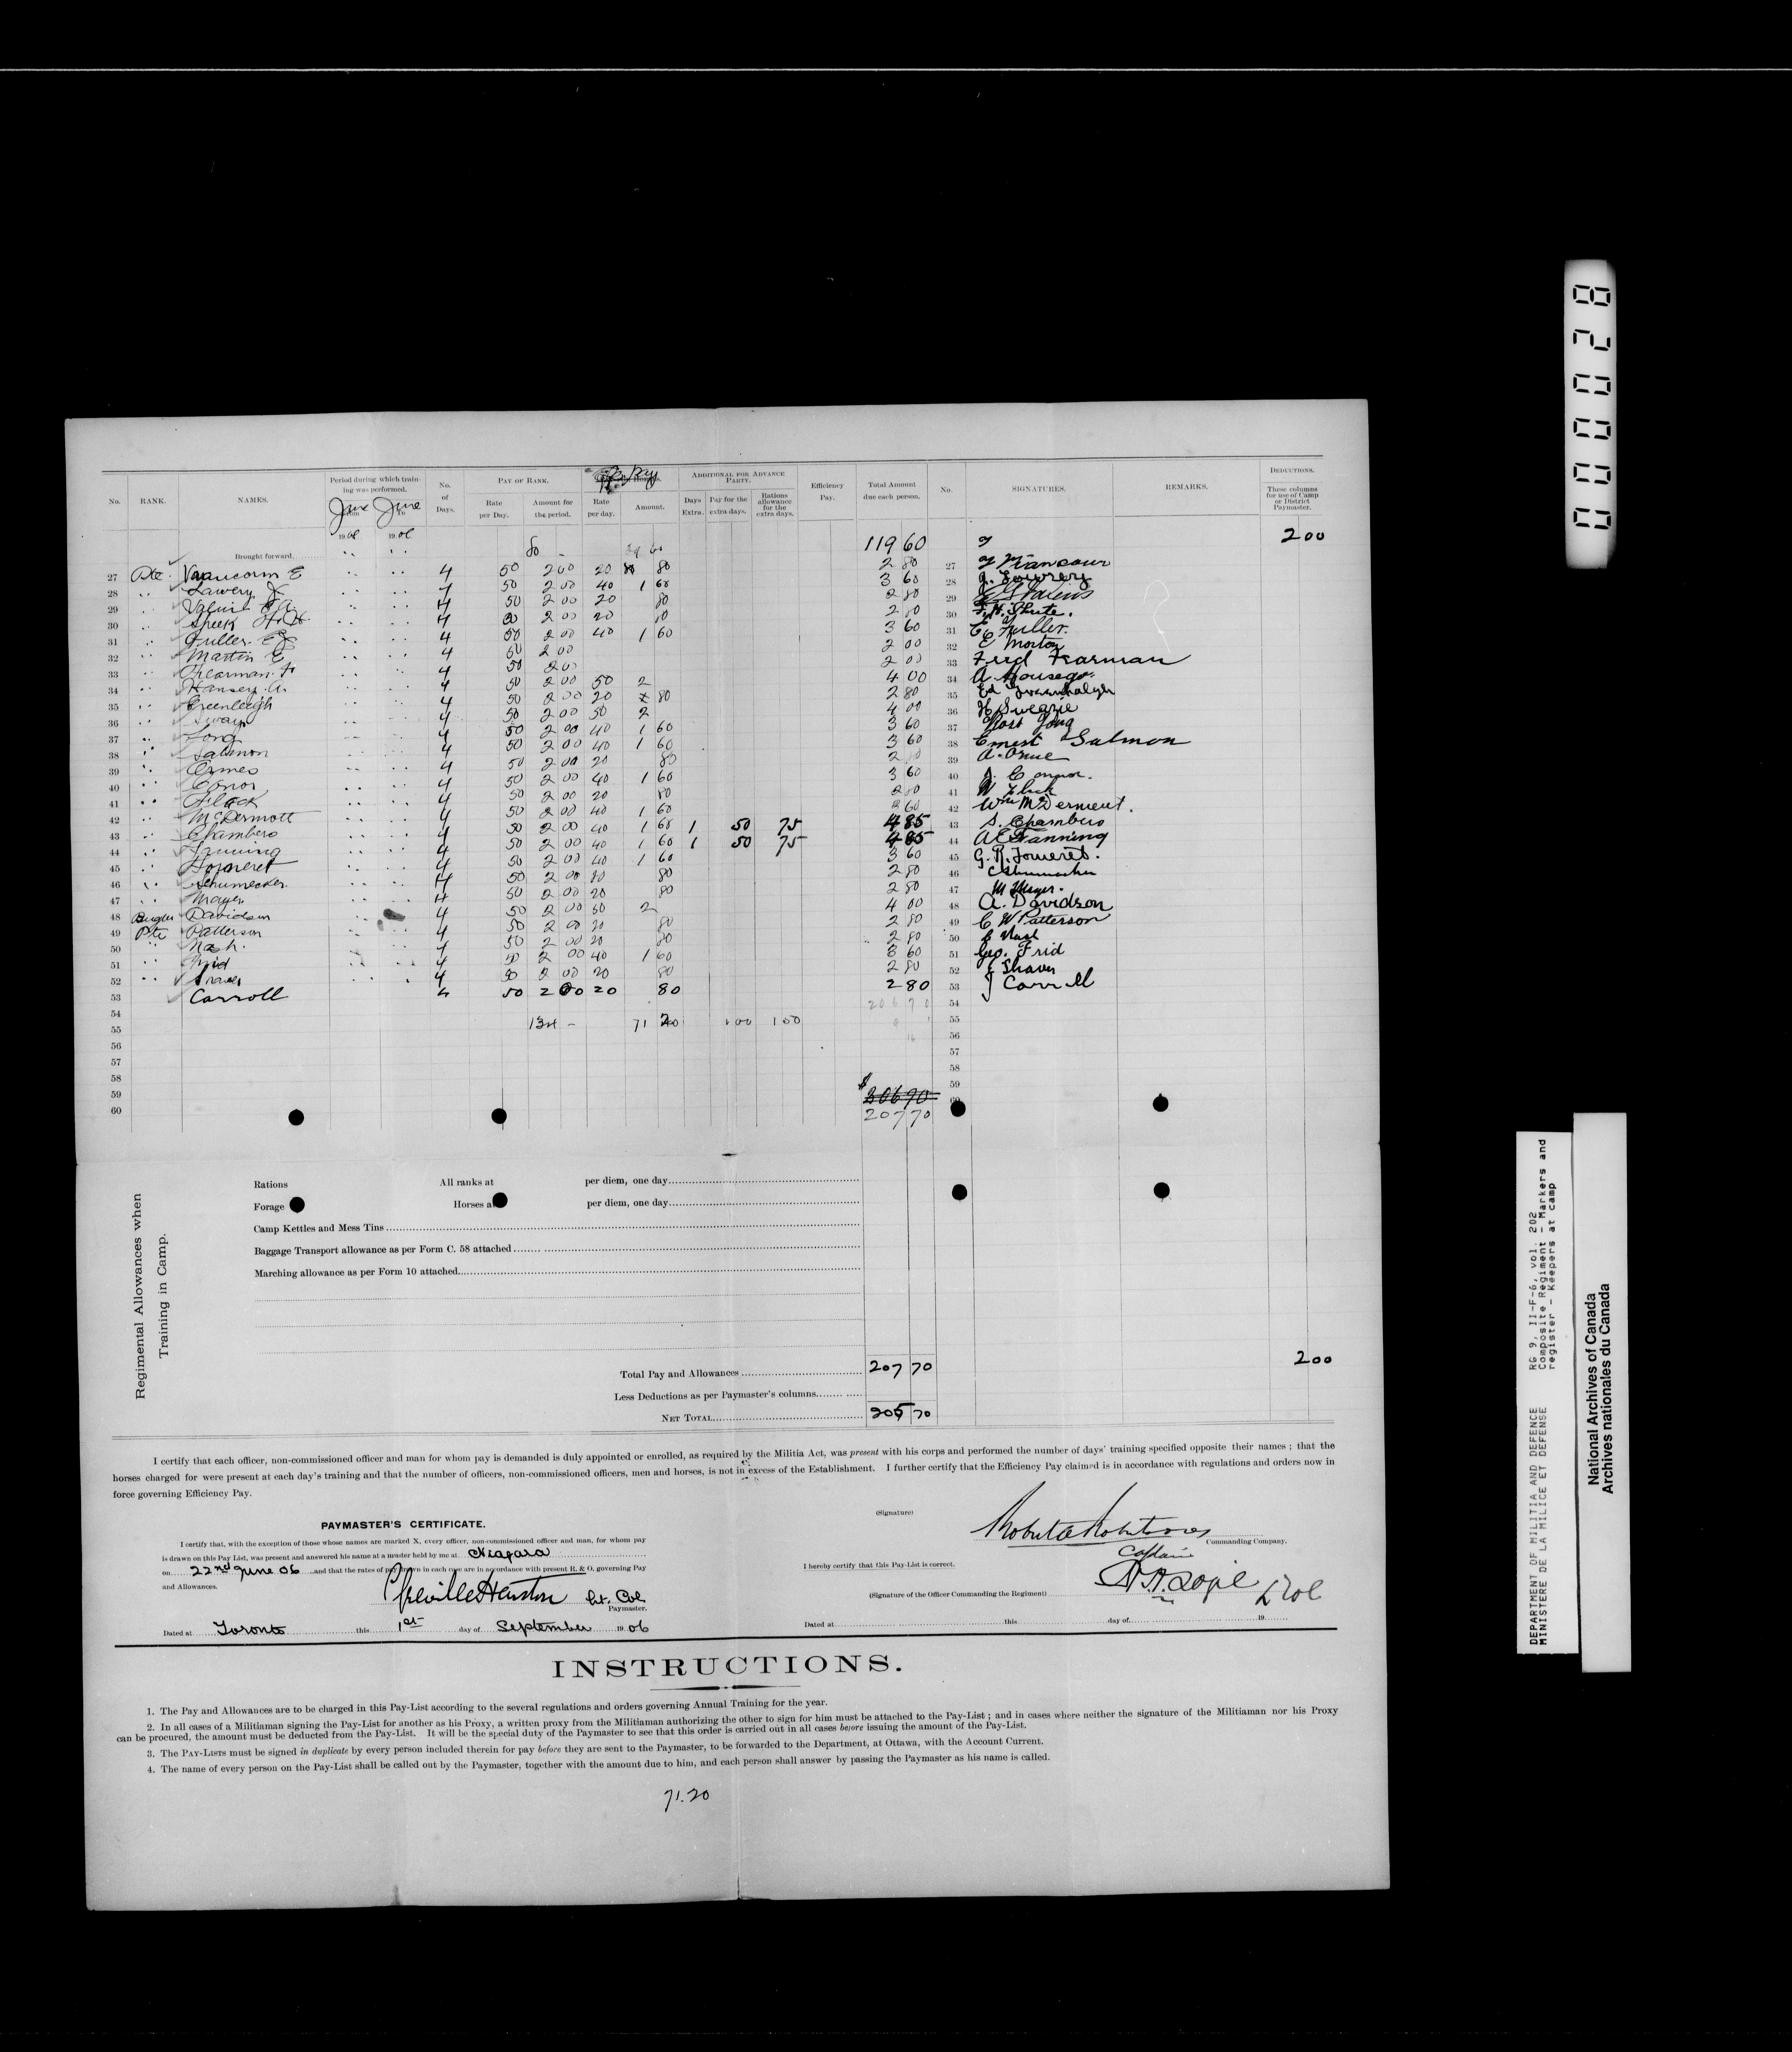 No. RANK. NAMES. Period during which training was performed. No. of Days. PAY OF RANK. Pay ADDITIONAL FOR ADVANCE PARTY. Efficiency Pay. Total Amount due each person. No. SIGNATURES. REMARKS. DEDUCTIONS.
June June Rate per Day. Amount for the period. Rate per day. Amount. Days Extra. Pay for the extra days. Rations allowance for the extra days. These columns for use of Camp or District Paymaster.
Brought forward. 80 - 119 60 2 00
27 Pte 4 50 2 00 20 80 2 80 27
28 Lawery J 4 50 2 00 40 1 60 3 60 28 J. Lowrey
29 4 50 2 00 20 80 2 80 29
30 4 2 00 20 80 2 80 30
31 Fuller E J 4 50 2 00 40 1 60 3 60 31 Fuller.
32 Martin E 4 50 2 00 2 00 32 E Morton
33 Fearman F 4 50 2 00 2 00 33 Fred Fearman
34 4 50 2 00 50 2 4 00 34 A. Housego
35 Greenleigh 4 50 2 00 20 80 2 80 35 Ed Greenhalgh
36 4 50 2 00 50 2 4 00 36
37 Long 4 50 2 00 40 1 60 3 60 37 Long
38 Salmon 4 50 2 00 40 1 60 3 60 38 Ernest Salmon
39 Ormes 4 50 2 00 20 80 2 80 39 A. Orme
40 Conor 4 50 2 00 40 1 60 3 60 40 J. Connor.
41 Flack 4 50 2 00 20 80 2 80 41 W Flack
42 McDermott 4 50 2 00 40 1 60 3 60 42 Wm McDerment.
43 Chambers 4 50 2 00 40 1 60 1 50 75 4 85 43 S. Chambers
44 Fanning 4 50 2 00 40 1 60 1 50 75 4 85 44 A E Fanning
45 4 50 2 00 40 1 60 3 60 45 G. R. Fomeret.
46 Schumacker 4 50 2 00 20 80 2 80 46 C Shumacher
47 Mayer 4 50 2 00 20 80 2 80 47 M Mayer.
48 Bugler Davidson 4 50 2 00 50 2 4 00 48 A. Davidson
49 Pte Patterson 4 50 2 00 20 80 2 80 49 C W Patterson
50 Nash. 4 50 2 00 20 80 2 80 50 Nash
51 Frid 4 50 2 00 40 1 60 3 60 51 Geo. Frid
52 Shaver 4 50 2 00 20 80 2 80 52 Shaver
53 Carroll 4 50 2 00 20 80 2 80 53 J Carroll
54 206 70 54
55 134 - 71 20 1 00 1 50 55
56 56
57 57
58 58
59 $ 306 70 59
60 207 70 60
Regimental Allowances when Training in Camp.
Rations All ranks at per diem, one day
Forage Horses at per diem, one day
Camp Kettles and Mess Tins
Baggage Transport allowance as per Form C. 58 attached
Marching allowance as per Form 10 attached
Total Pay and Allowances 207 70 2 00
Less Deductions as per Paymaster's columns
NET TOTAL 205 70
I certify that each officer, non-commissioned officer and man for whom pay is demanded is duly appointed or enrolled, as required by the Militia Act, was present with his corps and performed the number of days' training specified opposite their names ; that the
horses charged for were present at each day's training and that the number of officers, non-commissioned officers, men and horses, is not in excess of the Establishment. I further certify that the Efficiency Pay claimed is in accordance with regulations and orders now in
force governing Efficiency Pay.
PAYMASTER'S CERTIFICATE.
I certify that, with the exception of those whose names are marked X, every officer, non-commissioned officer and man, for whom pay
is drawn on this Pay List, was present and answered his name at a muster held by me at Niagara
on 22nd June 06 and that the rates of pay drawn in each case are in accordance with present R. & O. governing Pay
and Allowances.
Lt. Col
Paymaster.
Dated at Toronto this 1st day of September 1906
(Signature)
Captain Commanding Company.
I hereby certify that this Pay-List is correct.
(Signature of the Officer Commanding the Regiment)
Dated at this day of 19
INSTRUCTIONS.
1. The Pay and Allowances are to be charged in this Pay-List according to the several regulations and orders governing Annual Training for the year.
2. In all cases of a Militiaman signing the Pay-List for another as his Proxy, a written proxy from the Militiaman authorizing the other to sign for him must be attached to the Pay-List ; and in cases where neither the signature of the Militiaman nor his Proxy
can be procured, the amount must be deducted from the Pay-List. It will be the special duty of the Paymaster to see that this order is carried out in all cases before issuing the amount of the Pay-List.
3. The PAY-LISTS must be signed in duplicate by every person included therein for pay before they are sent to the Paymaster, to be forwarded to the Department, at Ottawa, with the Account Current.
4. The name of every person on the Pay-List shall be called out by the Paymaster, together with the amount due to him, and each person shall answer by passing the Paymaster as his name is called.
71.20
000028
DEPARTMENT OF MILITIA AND DEFENCE RG 9, II-F-6, vol. 202
MINISTERE DE LA MILICE ET DEFENSE Composite Regiment - Markers and
register - Keepers at camp
National Archives of Canada
Archives nationales du Canada